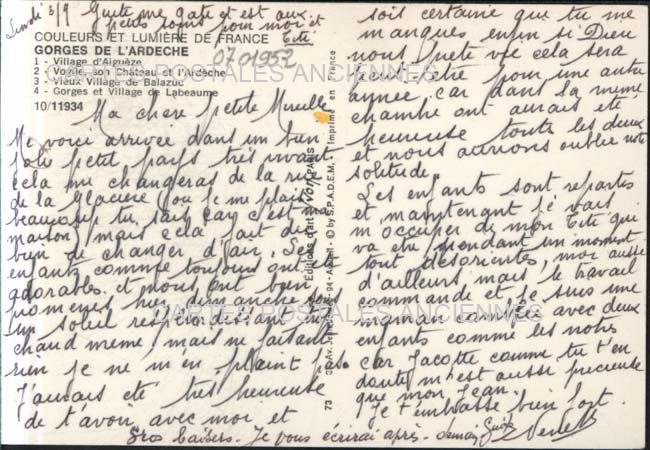 Lundi 3/9 Guite me gate et est aux
petits soins pour moi et
Titi
COULEURS ET LUMIÈRE DE FRANCE
GORGES DE L'ARDECHE
0701952
1 - Village d'Aiguèze
2 - Vogüé, son Château et l'Ardèche
3 - Vieux Village de Balazuc
4 - Gorges et Village de Labeaume
10/11934
Ma chère petite Mireille
Me voici arrivée dans un bien
joli petit pays très vivant
cela me changeras de la rue
de la Glacière ou je me plais
beaucoup tu sais car c'est
maison) mais cela fait du
bien de changer d'air. Les
enfants comme toujours ont
adorables. et nous ont bien
promenés hier dimanche sous
un soleil resplendissant
chaud meme, mais ne faisant
rien je ne m'en plaint pas.
J'aurais été très heureuse
de t'avoir avec moi et
soit certaine que tu me
manques enfin si Dieu
nous prete vie cela sera
peut etre pour une autre
année. car dans la meme
chambre ont aurais été
heureuse toutes les deux
et nous aurions oublié notre
solitude.
Les enfants sont repartis
et maintenant je vais
m'occuper de mon Titi qui
va etre pendant un moment
tout désorientés, moi aussi
d'ailleurs mais le travail
commande et je suis une
maman comblée avec deux
enfants comme les notres
car Jacotte comme tu t'en
doute m'est aussi précieuse
que mon Jean.
Je t'embrasse bien fort.
Gros baisers. Je vous écrirai après-demain Guite
Editions d'art Yvon PARIS
© by S.P.A.D.E.M. - Imprimé en France
73
CARTES POSTALES ANCIENNES
CARTES POSTALES ANCIENNES